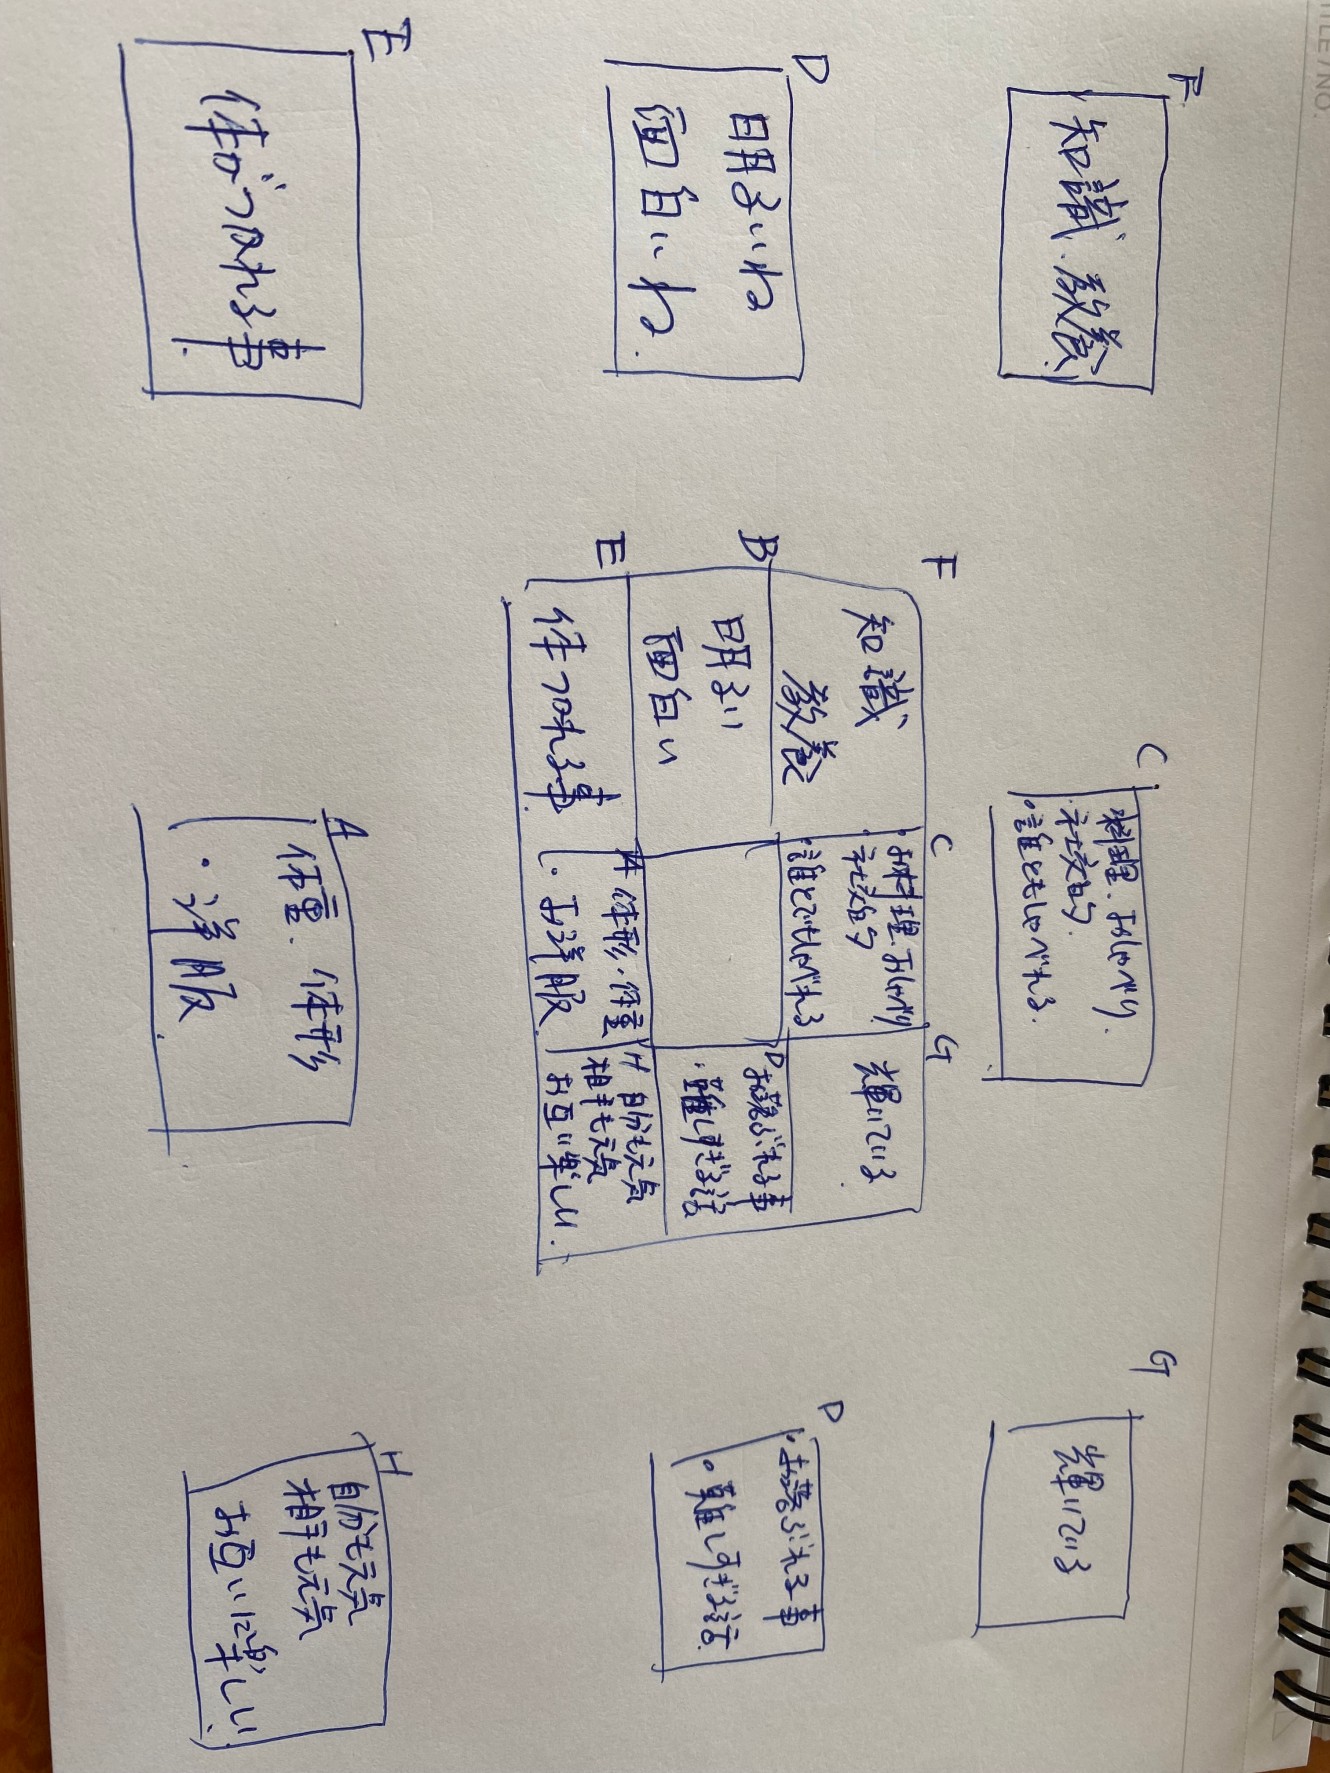 TITLE/NO.
F
知識、教養
C
料理、おしゃべり.
・社交的.
・誰ともしゃべれる.
G
輝いている
D
明るいね
面白いね.
F
知識
教養
C
・お料理おしゃべり
社交的
・誰とでもしゃべれる
G
輝いている.
B
明るい
面白い
D
ぶれる事
・難しすぎる話
E
体つかれる事.
A
体形・体重
・お洋服
H
自分も元気
相手も元気
お互い楽しい.
D
ぶれる事
・難しすぎる話
E
体がつかれる事.
A
体重、体形
・洋服
H
自分も元気
相手も元気
お互いに楽しい.